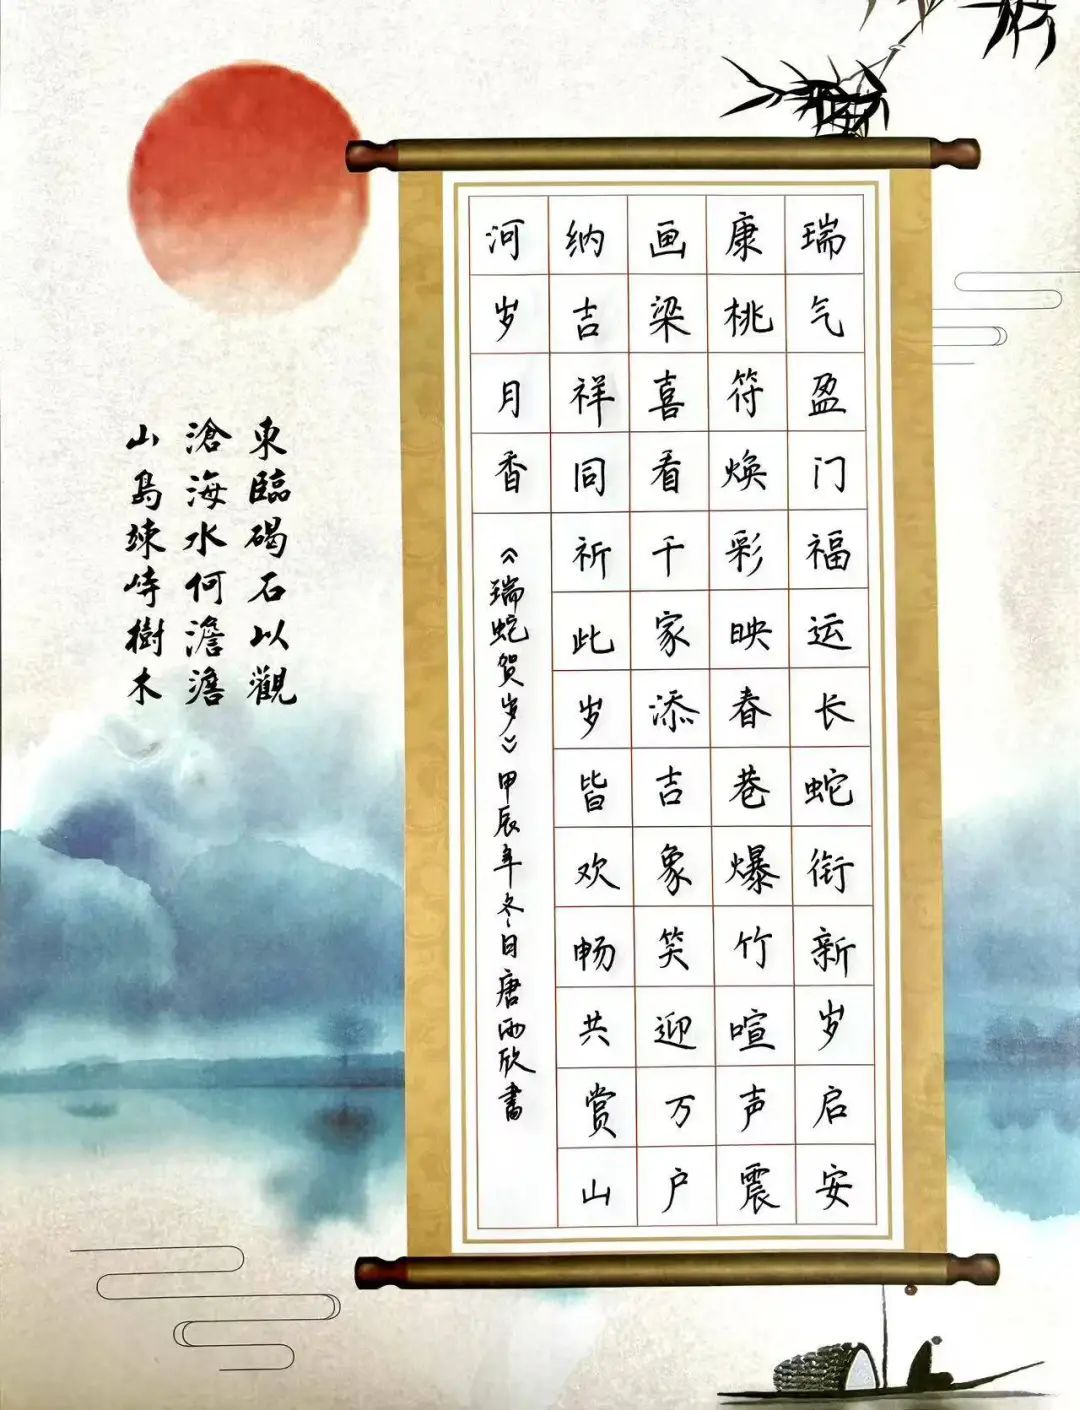 瑞气盈门福运长蛇衔新岁启安
康桃符焕彩映春巷爆竹喧声震
画梁喜看千家添吉象笑迎万户
纳吉祥同祈此岁皆欢畅共赏山
河岁月香
《瑞蛇贺岁》甲辰年冬日唐雨欣书
東臨碣石以觀
滄海水何澹澹
山島竦峙樹木